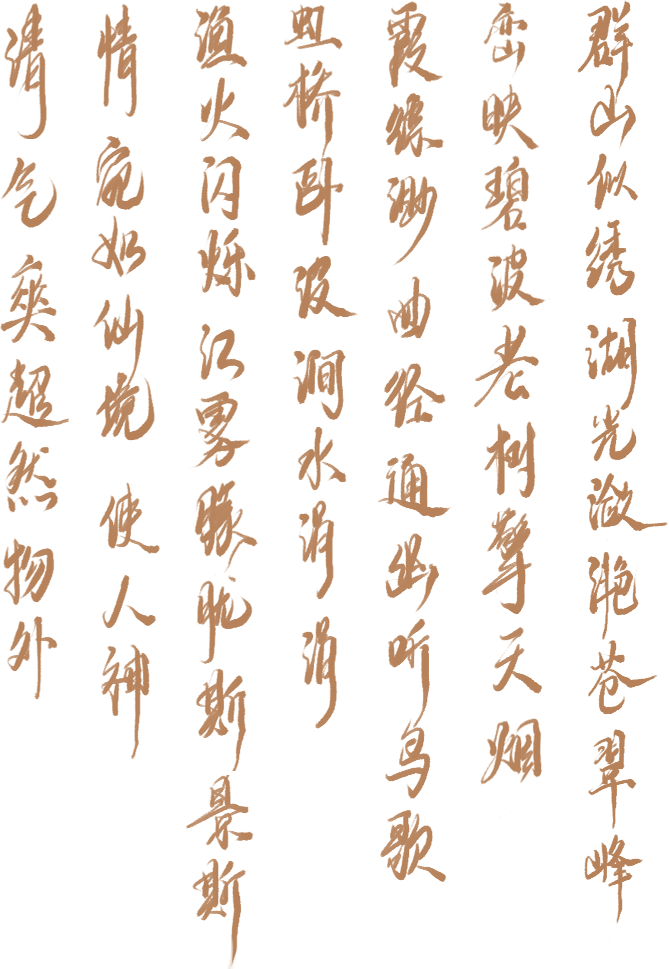 群山似绣湖光潋滟苍翠峰
峦映碧波老树擎天烟
霞缭渺曲径通幽听鸟歌
虹桥卧波涧水涓涓
渔火闪烁江雾朦胧斯景斯
情宛如仙境使人神
清气爽超然物外